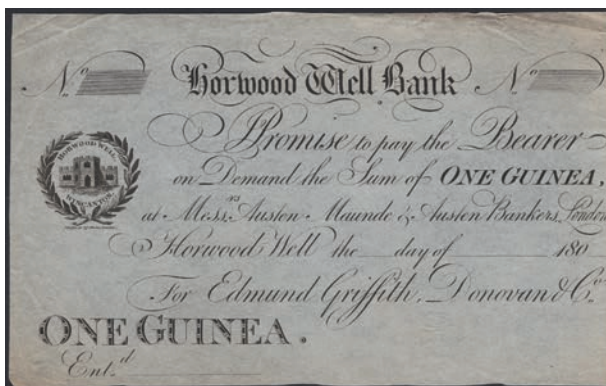 No. Horwood Well Bank No.
Promise to pay the Bearer
on Demand the Sum of ONE GUINEA,
HORWOOD WELL
WINCANTON
at Messrs Austen Maunde & Austen Bankers, London
Horwood Well the day of 180
For Edmund Griffith, Donovan & Co.
ONE GUINEA.
Entd.